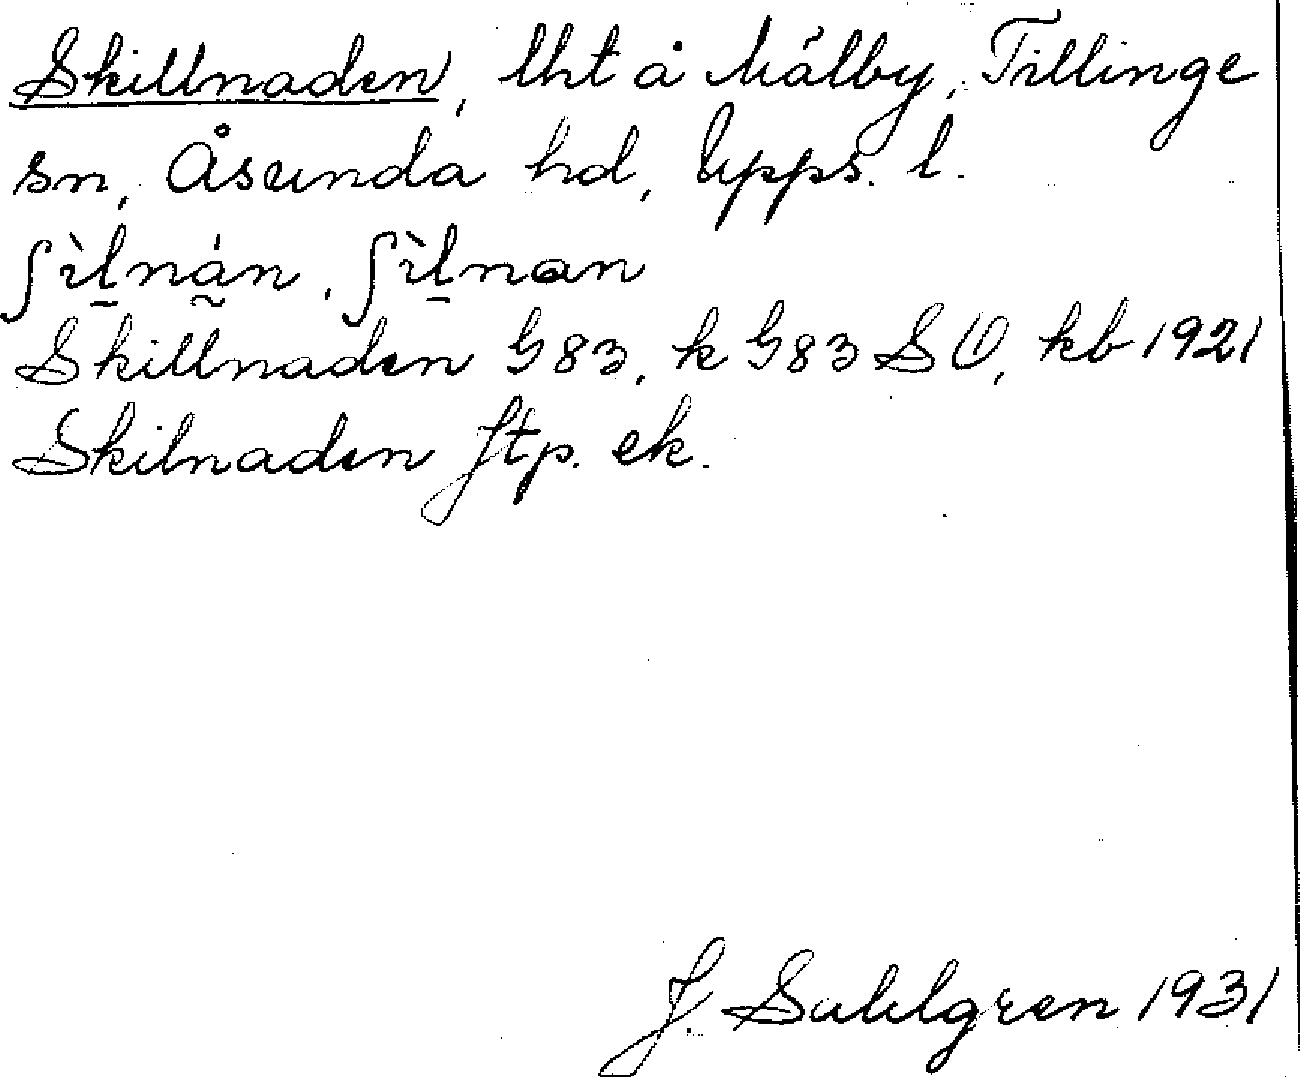 Skillnaden, lht å Mälby, Tillinge
sn, Åsunda hd, Upps. l.
ʃìḻná̰n, ʃìḻnan
Skillnaden G83, k G83 SO, kb 1921
Skilnaden Jtp. ek.
J. Sahlgren 1931